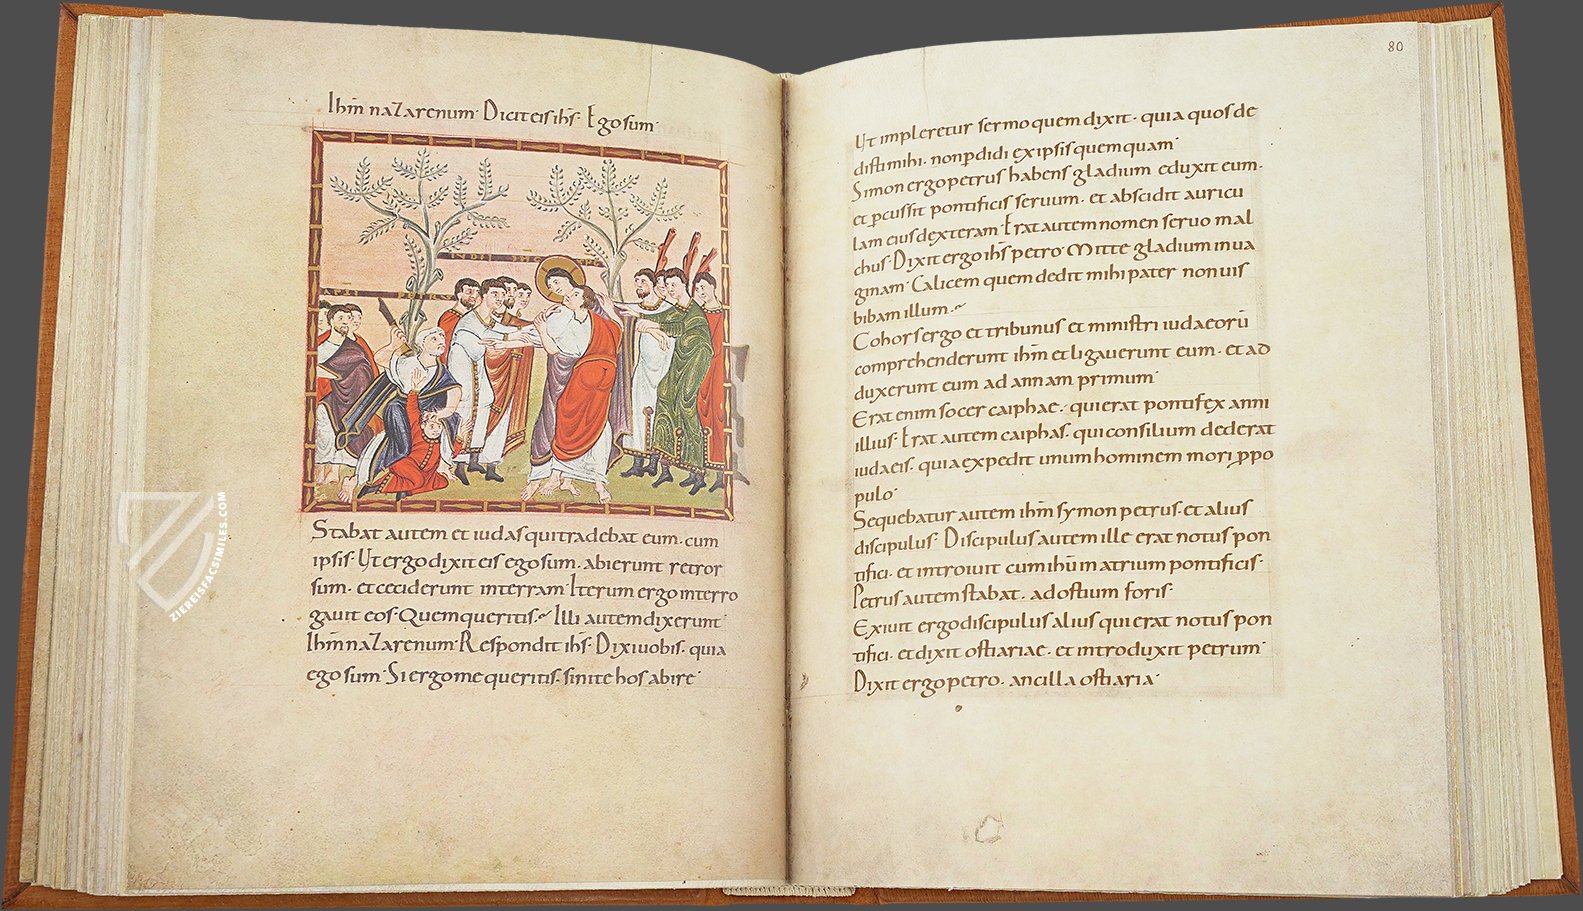 Ihm̄ naZarenum· Dicit eis ihs̄· Ego sum·
Stabat autem et iudas qui tradebat eum· cum
ipsis· Ut ergo dixit eis ego sum· abierunt retror
sum· et ceciderunt in terram· Iterum ergo interro
gauit eos· Quem queritis· Illi autem dixerunt
Ihm̄ naZarenum· Respondit ihs̄· Dixi uobis· quia
ego sum· Si ergo me queritis· sinite hos abire·
80
Ut impleretur sermo quem dixit· quia quos de
disti mihi· non ꝑdidi ex ipsis quemquam·
Simon ergo petrus habens gladium eduxit eum·
et ꝑcussit pontificis seruum· et abscidit auricu
lam eius dexteram· Erat autem nomen seruo mal
chus· Dixit ergo ihs̄ petro· Mitte gladium in ua
ginam· Calicem quem dedit mihi pater non uis
bibam illum·
Cohors ergo et tribunus et ministri iudaeorū
comprehenderunt ihm̄ et ligauerunt eum· et ad
duxerunt eum ad annam primum·
Erat enim socer caiphae· qui erat pontifex anni
illius· Erat autem caiphas· qui consilium dederat
iudaeis· quia expedit unum hominem mori ꝓ po
pulo·
Sequebatur autem ihm̄ symon petrus· et alius
discipulus· Discipulus autem ille erat notus pon
tifici· et introiuit cum ihū in atrium pontificis·
Petrus autem stabat· ad ostium foris·
Exiuit ergo discipulus alius qui erat notus pon
tifici· et dixit ostiariae· et introduxit petrum·
Dixit ergo petro· ancilla ostiaria·
ZIEREISFACSIMILES.COM